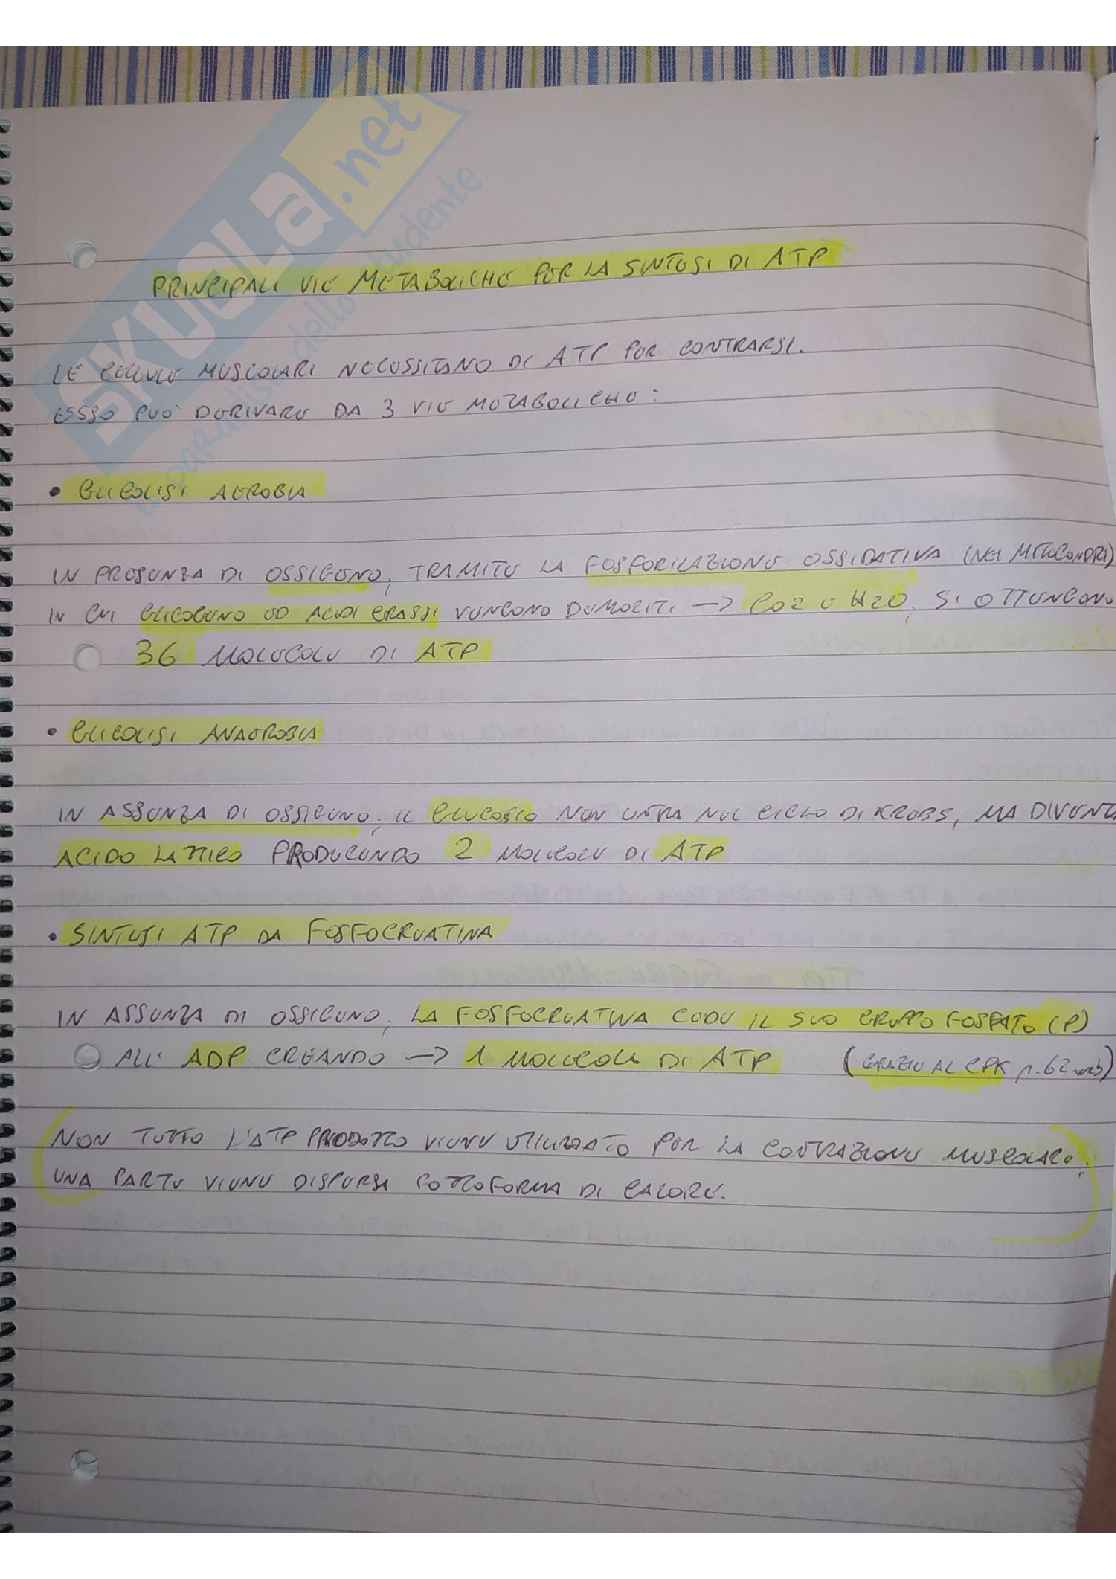 SKUOLA.net
PRINCIPALI VIE METABOLICHE PER LA SINTESI DI ATP
LE CELLULE MUSCOLARI NECESSITANO DI ATP PER CONTRARSI.
ESSO PUO' DERIVARE DA 3 VIE METABOLICHE:
• GLICOLISI AEROBIA
IN PRESENZA DI OSSIGENO, TRAMITE LA FOSFORILAZIONE OSSIDATIVA (NEI MITOCONDRI)
IN CUI GLICOGENO ED ACIDI GRASSI VENGONO DEMOLITI → CO2 E H2O, SI OTTENGONO
36 MOLECOLE DI ATP
• GLICOLISI ANAEROBIA
IN ASSENZA DI OSSIGENO, IL GLUCOSIO NON ENTRA NEL CICLO DI KREBS, MA DIVENTA
ACIDO LATTICO PRODUCENDO 2 MOLECOLE DI ATP
• SINTESI ATP DA FOSFOCREATINA
IN ASSENZA DI OSSIGENO, LA FOSFOCREATINA CEDE IL SUO GRUPPO FOSFATO (P)
ALL' ADP CREANDO → 1 MOLECOLA DI ATP (GRAZIE AL CPK p.62
NON TUTTO L'ATP PRODOTTO VIENE UTILIZZATO PER LA CONTRAZIONE MUSCOLARE,
UNA PARTE VIENE DISPERSA SOTTOFORMA DI CALORE.